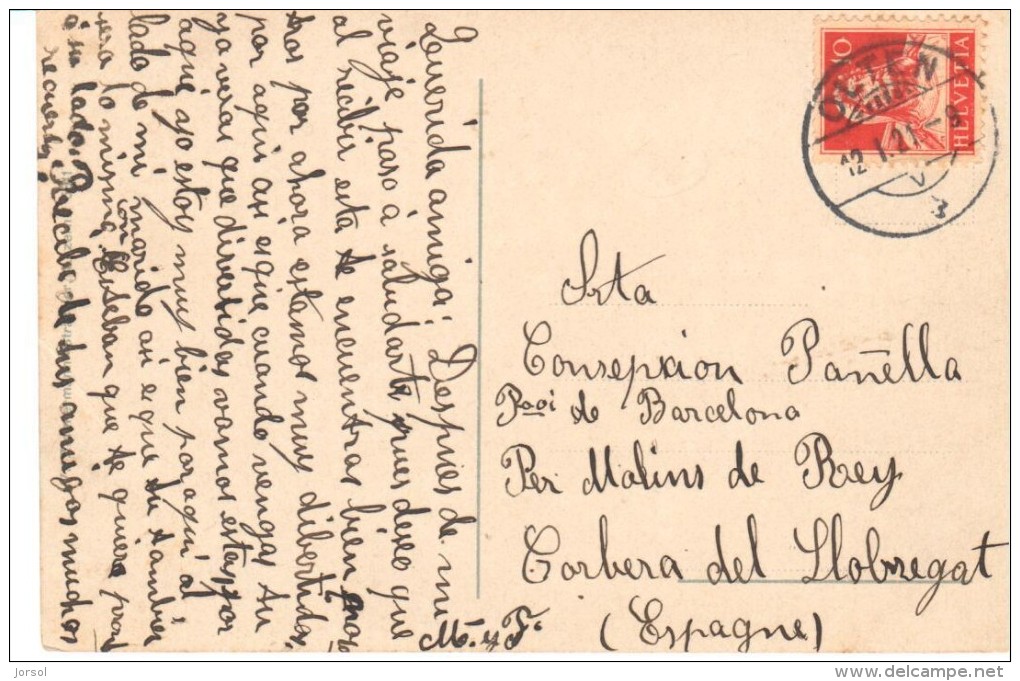 Querida amiga: Despues de mi
viaje paso á saludarte pues deseo que
al recibir esta te encuentras bien
tros por ahora estamos muy dibertidas
por aqui asi es que cuando vengas tu
ya veras que divertidas vamos estar por
aqui yo estoy muy bien por aqui al
lado de mi marido asi es que tu tambien
sera lo mismo con Esteban que te quiere
á su lado. Recibe de tus amigos muchos
recuerdos
M. y F.
10
HELVETIA
OLTEN
12.I.21.-9
3
Srta
Consepxion Panella
Barcelona
Per Molins de Rey
Corbera del Llobregat
(Espagne)
jorsol
www.delcampe.net